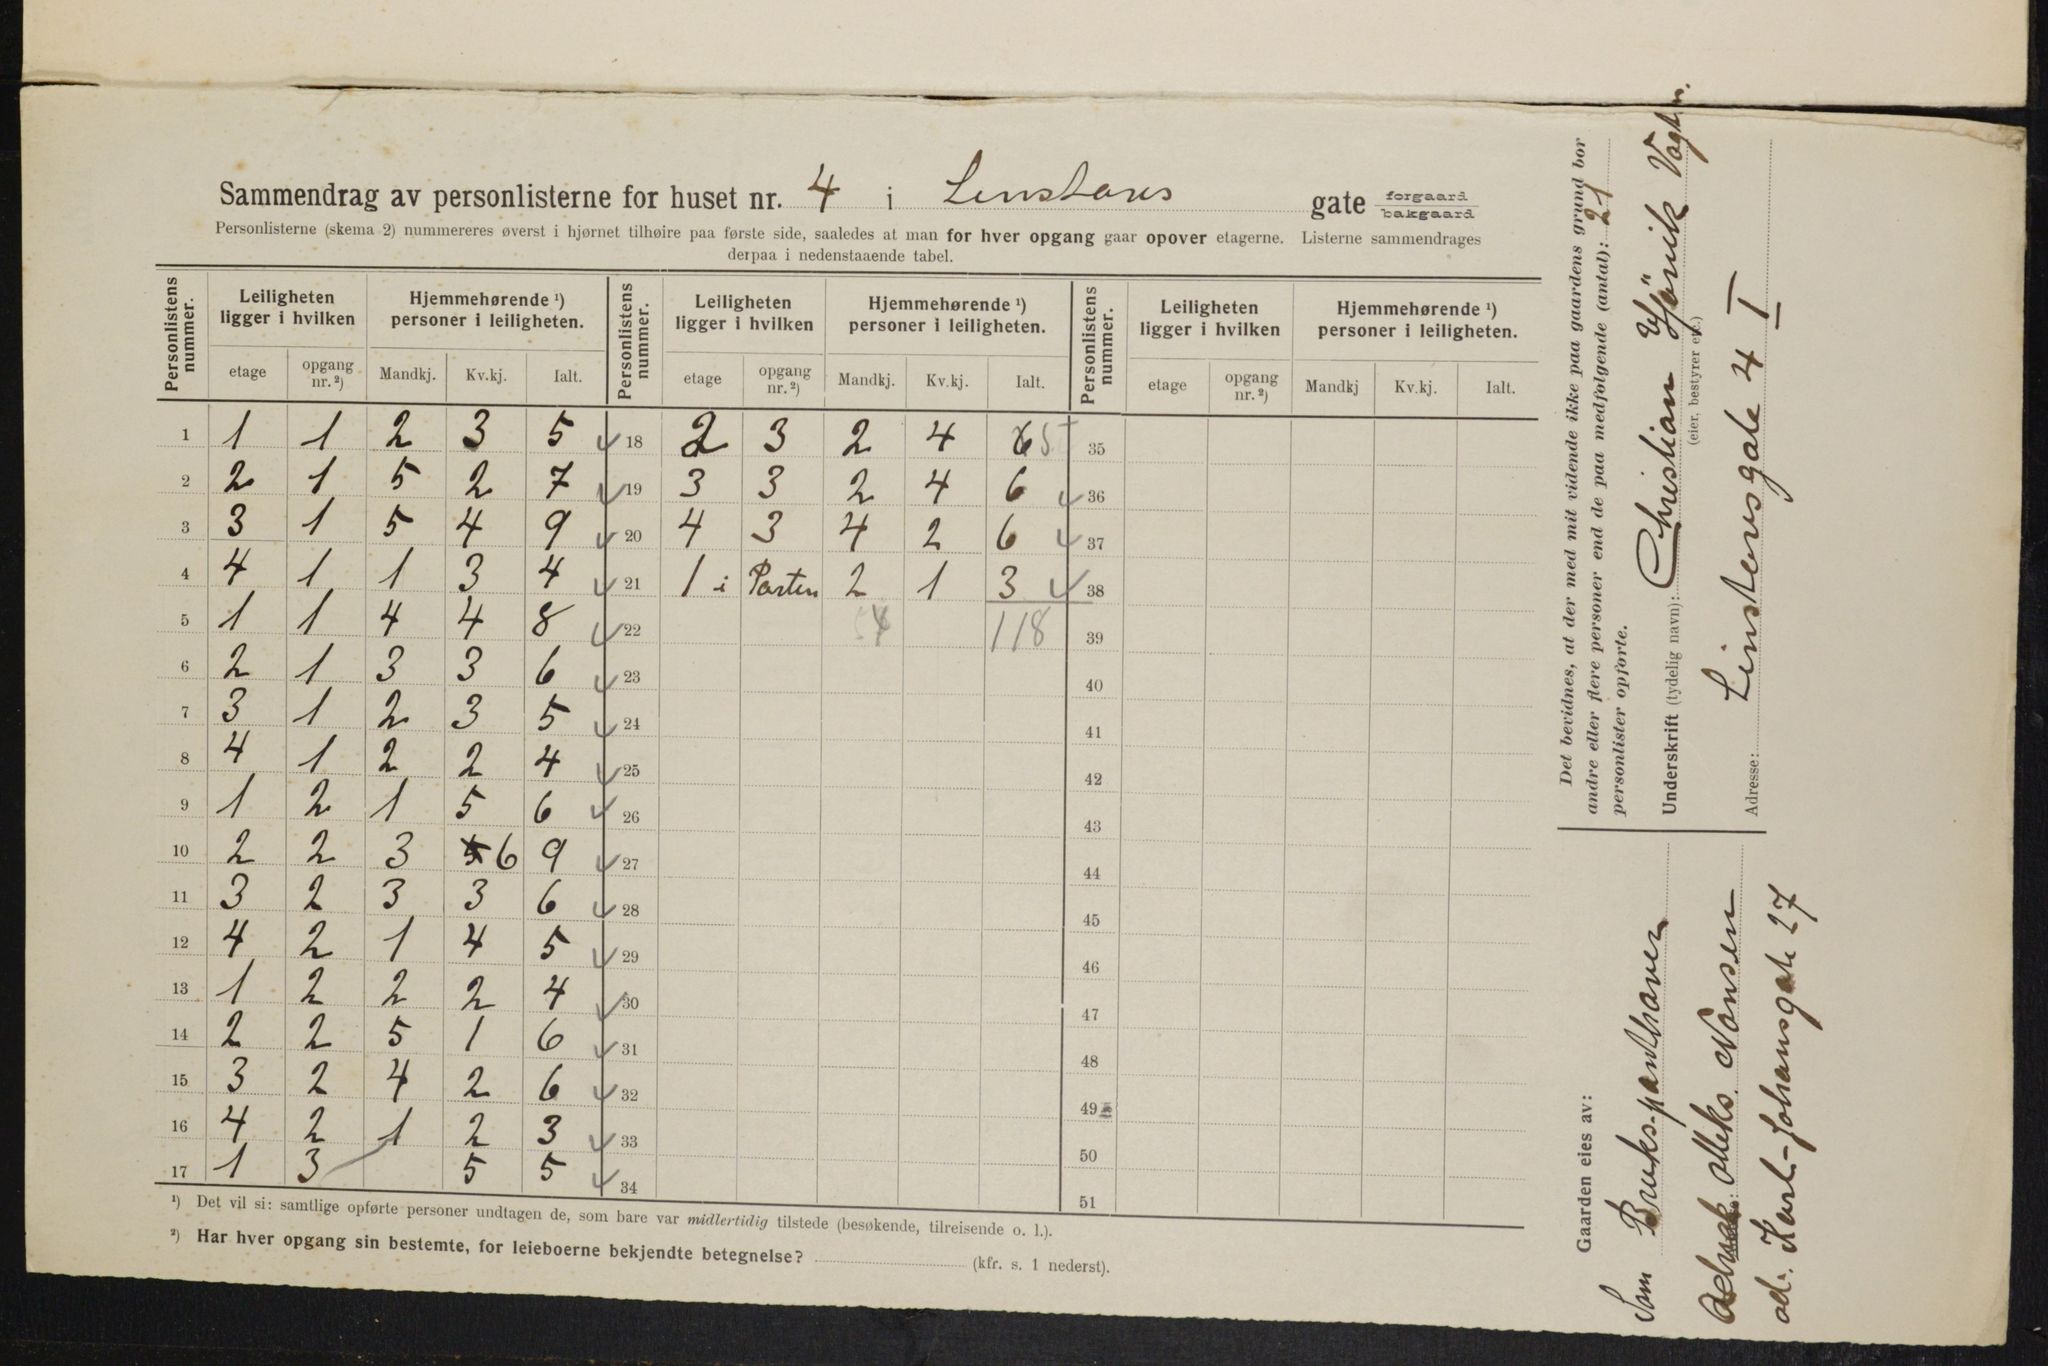 Sammendrag av personlisterne for huset nr. 4 i Linstows gate forgaard bakgaard
Personlisterne (skema 2) nummereres øverst i hjørnet tilhøire paa første side, saaledes at man for hver opgang gaar opover etagerne. Listerne sammendrages
derpaa i nedenstaaende tabel.
Personlistens nummer. Leiligheten ligger i hvilken Hjemmehørende ¹) personer i leiligheten. Personlistens nummer. Leiligheten ligger i hvilken Hjemmehørende ¹) personer i leiligheten. Personlistens nummer. Leiligheten ligger i hvilken Hjemmehørende ¹) personer i leiligheten.
etage opgang nr. ²) Mandkj. Kv.kj. Ialt. etage opgang nr. ²) Mandkj. Kv.kj. Ialt. etage opgang nr. ²) Mandkj Kv.kj. Ialt.
1 1 1 2 3 5 18 2 3 2 4 6 5 35
2 2 1 5 2 7 19 3 3 2 4 6 36
3 3 1 5 4 9 20 4 3 4 2 6 37
4 4 1 1 3 4 21 1 i Porten 2 1 3 38
5 1 1 4 4 8 22 54 118 39
6 2 1 3 3 6 23 40
7 3 1 2 3 5 24 41
8 4 1 2 2 4 25 42
9 1 2 1 5 6 26 43
10 2 2 3 6 9 27 44
11 3 2 3 3 6 28 45
12 4 2 1 4 5 29 46
13 1 2 2 2 4 30 47
14 2 2 5 1 6 31 48
15 3 2 4 2 6 32 49
16 4 2 1 2 3 33 50
17 1 3 5 5 34 51
¹) Det vil si: samtlige opførte personer undtagen de, som bare var midlertidig tilstede (besøkende, tilreisende o. l.).
²) Har hver opgang sin bestemte, for leieboerne bekjendte betegnelse? (kfr. s. 1 nederst).
Det bevidnes, at der med mit vidende ikke paa gaardens grund bor
andre eller flere personer end de paa medfølgende (antal): 21
personlister opførte.
Underskrift (tydelig navn): Christian Vogt
(eier, bestyrer etc.)
Adresse: Linstowsgate 4 I
Gaarden eies av:
Som Bruks-panthaver
Aleks. Nansen
ad. Karl-Johansgate 27